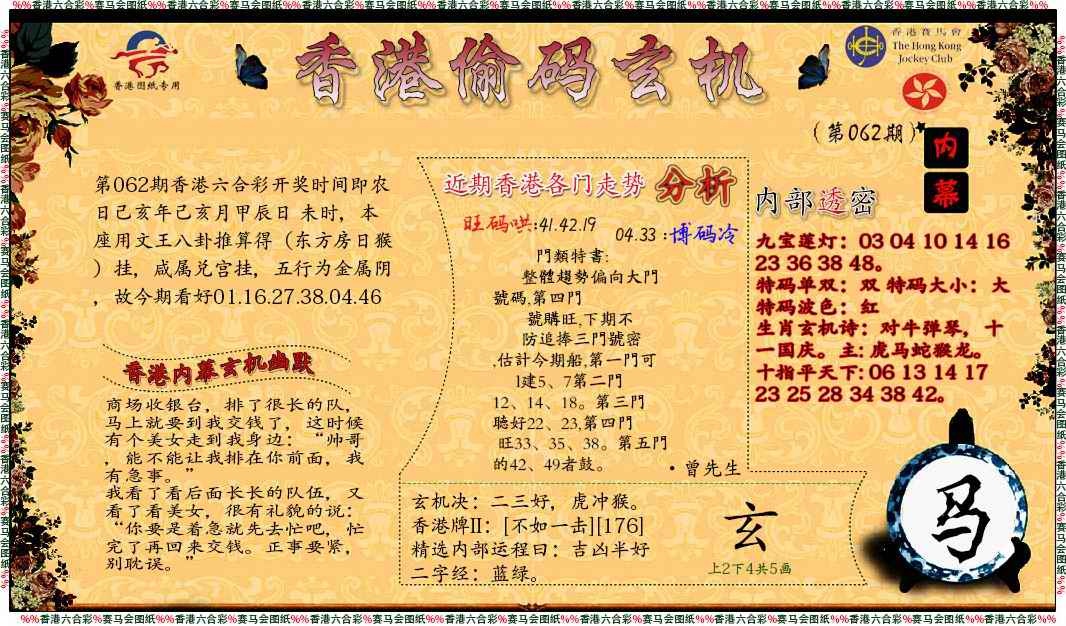 %%香港六合彩%赛马会图纸%%香港六合彩%赛马会图纸%%香港六合彩%赛马会图纸%%香港六合彩%赛马会图纸%%香港六合彩%赛马会图纸%%香港六合彩%赛马会图纸%%香港六合彩%%
香港图纸专用
香港偷码玄机
香港賽馬會
The Hong Kong
Jockey Club
(第062期)
内
幕
第062期香港六合彩开奖时间即农
日己亥年己亥月甲辰日 未时，本
座用文王八卦推算得（东方房日猴
）挂，咸属兑宫挂，五行为金属阴
，故今期看好01.16.27.38.04.46
香港内幕玄机幽默
商场收银台，排了很长的队，
马上就要到我交钱了，这时候
有个美女走到我身边：“帅哥
，能不能让我排在你前面，我
有急事。”
我看了看后面长长的队伍，又
看了看美女，很有礼貌的说：
“你要是着急就先去忙吧，忙
完了再回来交钱。正事要紧，
别耽误。”
近期香港各门走势 分析
旺码哄:41.42.19
04.33 :博码冷
門類特書:
整體趨勢偏向大門
號碼,第四門
號購旺,下期不
防追捧三門號密
,估計今期船,第一門可
l建5、7第二門
12、14、18。第三門
聴好22、23,第四門
旺33、35、38。第五門
的42、49者鼓。
•曾先生
玄机决：二三好，虎冲猴。
香港牌II：[不如一击][176]
精选内部运程曰：吉凶半好
二字经：蓝绿。
玄
上2下4共5画
内部透密
九宝莲灯：03 04 10 14 16
23 36 38 48。
特码单双：双 特码大小：大
特码波色：红
生肖玄机诗：对牛弹琴，十
一国庆。主: 虎马蛇猴龙。
十指平天下: 06 13 14 17
23 25 28 34 38 42。
马
%%香港六合彩%赛马会图纸%%香港六合彩%赛马会图纸%%香港六合彩%赛马会图纸%%香港六合彩%赛马会图纸%%香港六合彩%赛马会图纸%%香港六合彩%赛马会图纸%%香港六合彩%%